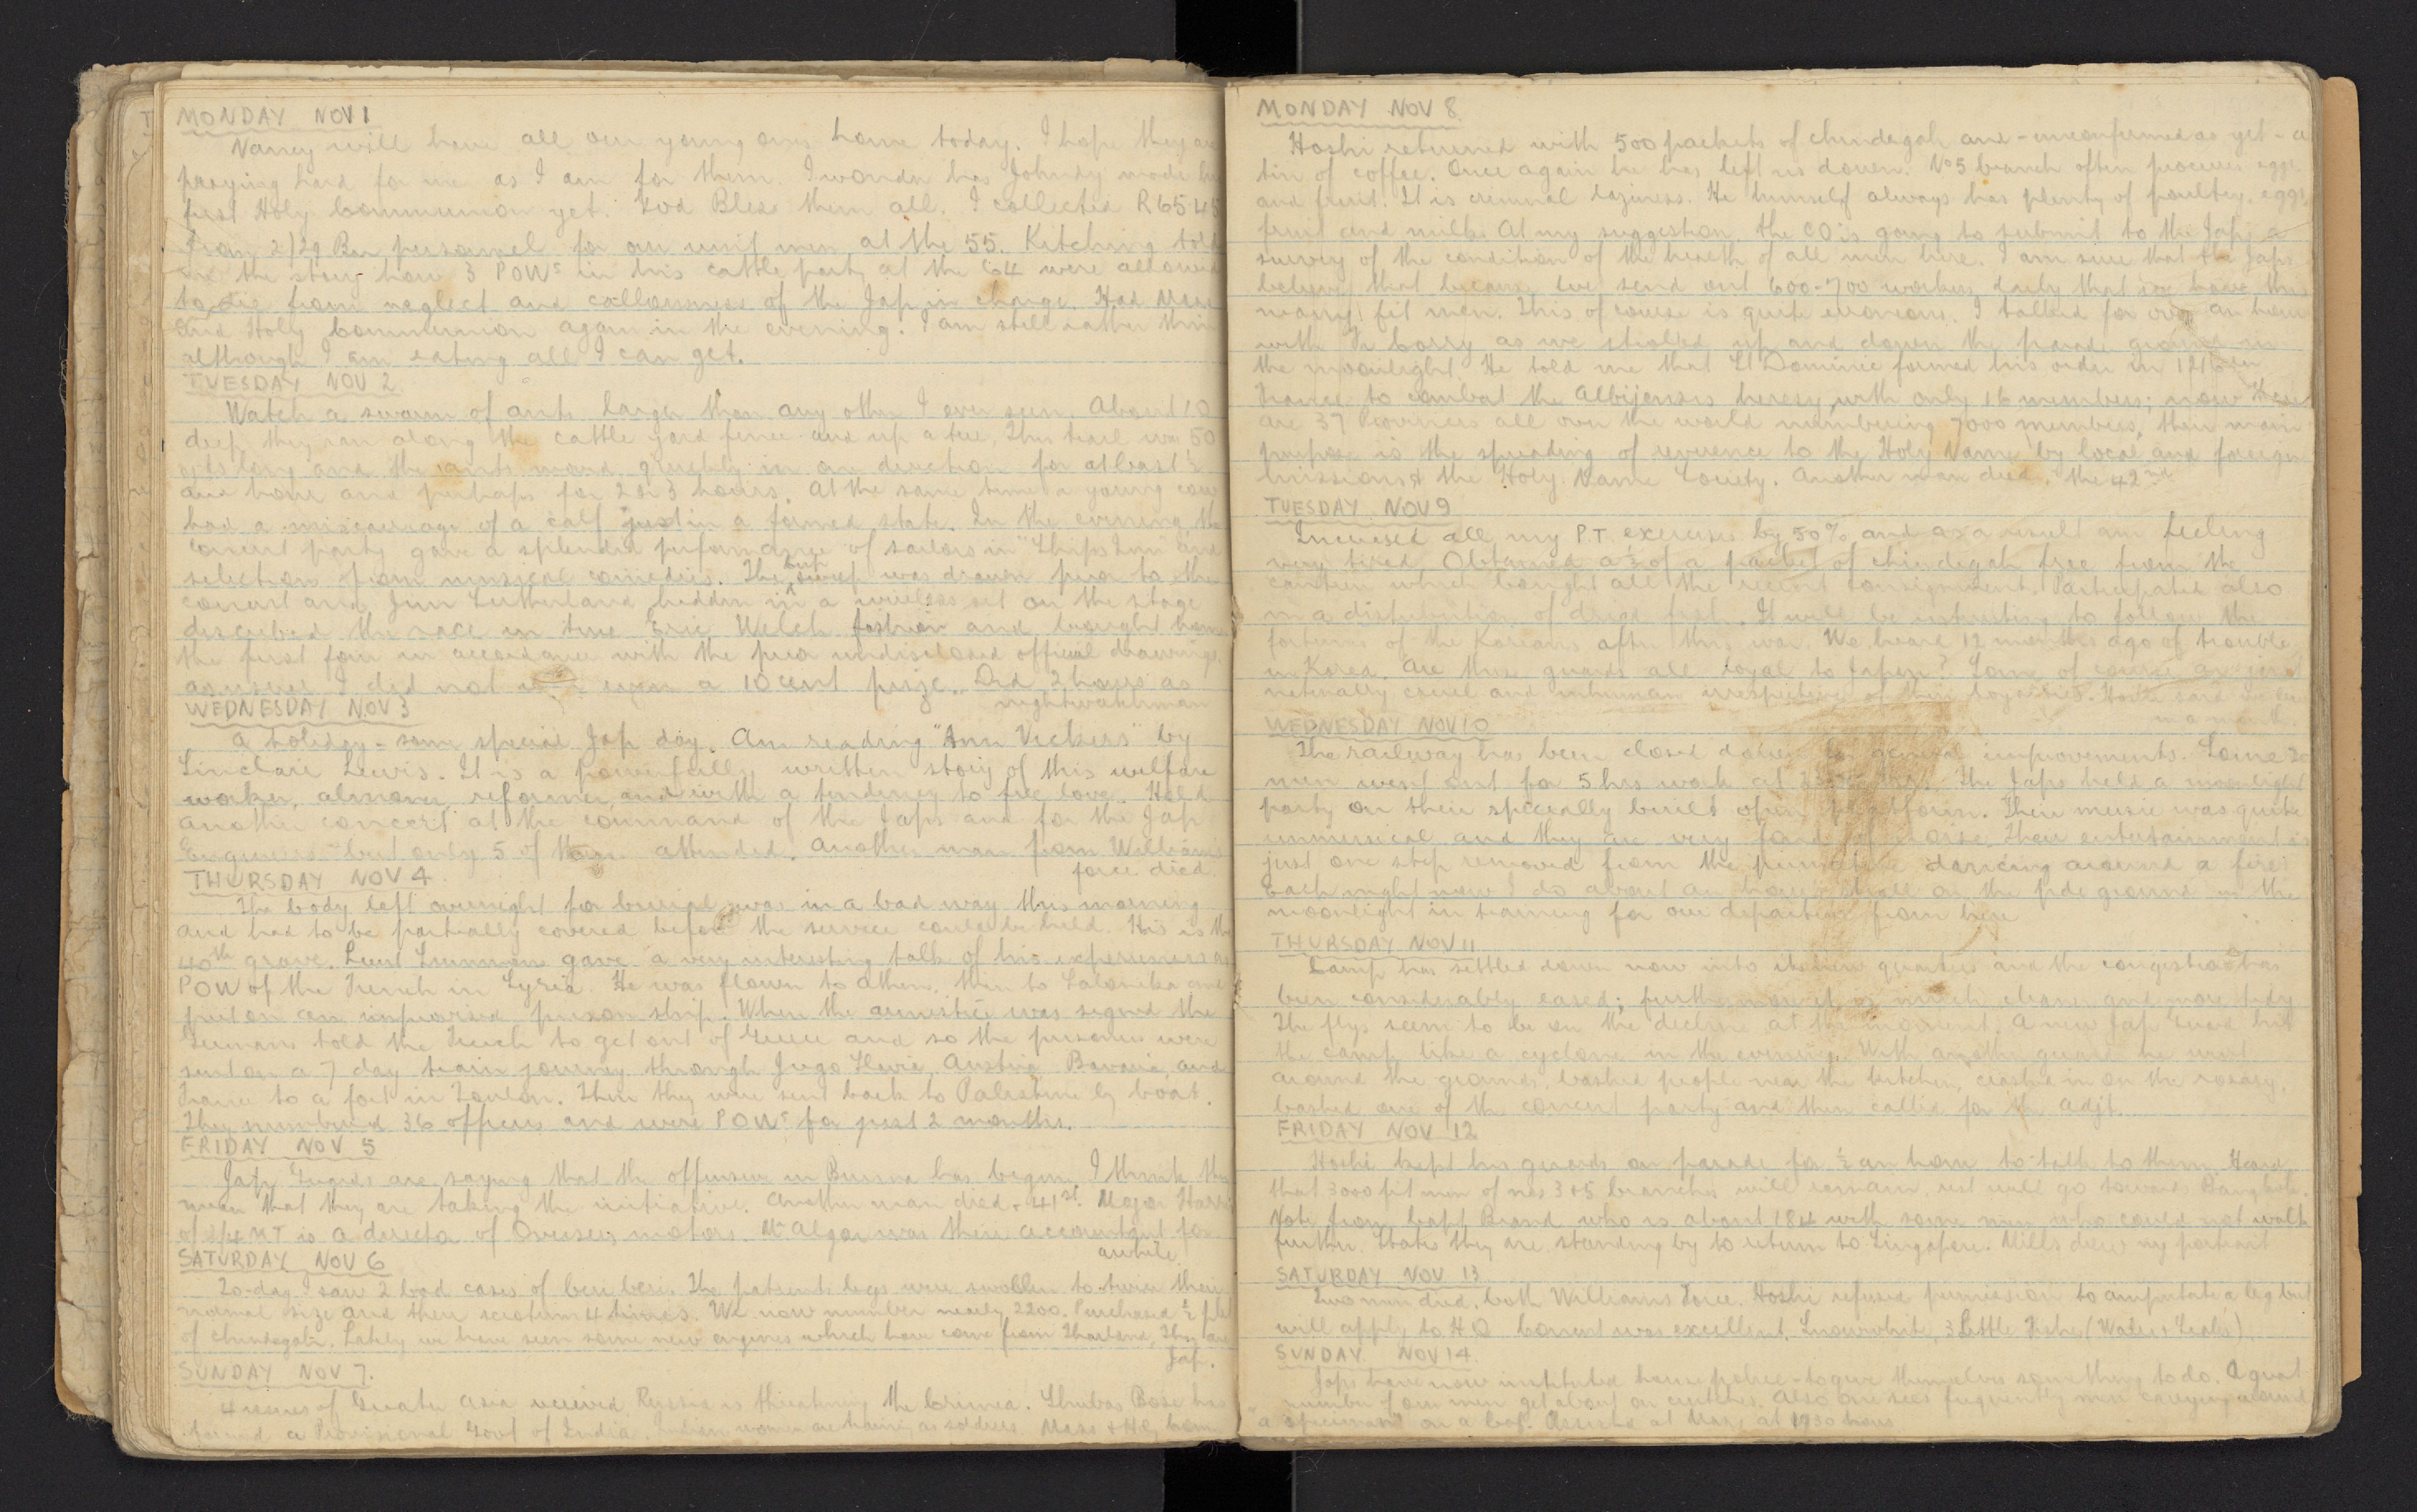 MONDAY NOV 1
Nancy will have all our young ones home today. I hope they are
praying hard for me as I am for them. I wonder has Johnny made his
first Holy Communion yet. God Bless them all. I collected R65.45
from 2/29 Bn personnel for our unit men at the 55. Kitching told
me the story how 3 POWs in his cattle party at the 64 were allowed
to die from neglect and callousness of the Jap in charge. Had Mass
and Holy Communion again in the evening. I am still rather thin
although I am eating all I can get.
TUESDAY NOV 2
Watch a swarm of ants larger than any other I ever seen. About 10
deep they ran along the cattle yard fence and up a tree. This trail was 50
yds long and the ants moved quickly in one direction for at least ½
an hour and perhaps for 2 or 3 hours. At the same time a young cow
had a miscarriage of a calf just in a formed state. In the evening the
concert party gave a splendid performance of sailors in "Ships Inn" and
selection from musical comedies. The cup sweep was drawn prior to the
concert and Jim Sutherland hidden in a wireless set on the stage
described the race in true Eric Welch fashion and brought home
the first four in accordance with the prior undisclosed official drawings.
as usual I did not win even a 10 cent prize. Did 2 hours as
nightwatchman
WEDNESDAY NOV 3
A holiday - some special Jap day. Am reading "Ann Vickers" by
Sinclair Lewis. It is a powerfully written story of this welfare
worker, almoner, reformer, and with a tendency to free love. Held
another concert at the command of the Japs and for the Jap
Engineers but only 5 of them attended. Another man from Williams
force died.
THURSDAY NOV 4
The body left overnight for burial was in a bad way this morning
and had to be partially covered before the service could be held. His is the
40th grave. Lieut gave a very interesting talk of his experiences as
POW of the French in Syria. He was flown to Athens, then to Salonika and
put on an improvised prison ship. When the armistice was signed the
Germans told the French to get out of Greece and so the prisoners were
sent on a 7 day train journey through Jugo Slavia, Austria, Bavaria, and
France to a fort in Toulon. Then they were sent back to Palestine by boat.
They numbered 36 officers and were POWs for just 2 months.
FRIDAY NOV 5
Jap Guards are saying that the offensive in Burma has begun. I think they
mean that they are taking the initiative. Another man died - 41st. Major Harris
of 2/4 MT is a director of Overseas motors. Mr Algar was their accountant for
awhile
SATURDAY NOV 6
To-day I saw 2 bad cases of beri beri. The patients legs were swollen to twice their
normal size and their scrotum 4 times. We now number nearly 2200. Purchased ½ pkt
of chindegah. Lately we have seen some new engines which have come from Thailand. They are
Jap.
SUNDAY NOV 7.
4 issues of Greater Asia received Russia is threatening the Crimea. Shubas Bose has
formed a Provisional Govt of India. Indian women are training as soldiers. Mass & Holy Comm
MONDAY NOV 8
Hoshi returned with 500 packets of chindegah and - unconfirmed as yet - a
tin of coffee. Once again he has left us down. No 5 branch often procures eggs
and fruit. It is criminal laziness. He himself always has plenty of poultry, eggs,
fruit and milk. At my suggestion, the CO is going to submit to the Japs a
survey of the condition of the health of all men here. I am sure that the Japs
believe that because we send out 600-700 workers daily that we have this
many fit men. This of course is quite erroneous. I talked for over an hour
with Fr Corry as we strolled up and down the parade ground in
the moonlight. He told me that St Dominic formed his order in 1216 in
France to combat the Albijenses heresy with only 16 members; now there
are 37 Provinces all over the world numbering 7000 members, their main
purpose is the spreading of reverence to the Holy Name by local and foreign
missions & the Holy Name Society. Another man died, the 42nd
TUESDAY NOV 9
Increased all my P.T. exercises by 50% and as a result am feeling
very tired. Obtained a ½ of a packet of chindegah free from the
canteen which bought all the recent consignment. Participated also
in a distribution of dried fish. It will be interesting to follow the
fortunes of the Koreans after this war. We heard 12 months ago of trouble
in Korea. Are these guards all loyal to Japan? Some of course are just
naturally cruel and inhuman irrespective of their loyalties. Hoshi said we leave
in a month.
WEDNESDAY NOV 10
The railway has been closed down for general improvements. Some 20
men went out for 5 hrs work at hrs. The Japs held a moonlight
party on their specially built open platform. Their music was quite
unmusical and they are very fond of noise. Their entertainment is
just one step removed from the primitive dancing around a fire.
Each night now I do about an hours stroll on the pde ground in the
moonlight in training for our departure from here
THURSDAY NOV 11
Camp has settled down now into its new quarters and the congestion has
been considerably eased; furthermore it is much cleaner and more tidy
The flys seem to be on the decline at the moment. A new Jap Guard hit
the camp like a cyclone in the evening. With another guard he went
around the grounds, bashed people near the kitchen, crashed in on the rosary,
bashed one of the concert party and then called for the adjt.
FRIDAY NOV 12
Hoshi kept his guards on parade for ½ an hour to talk to them. Heard
that 3000 fit men of nos 3 & 5 branches will remain, rest will go towards Bangkok.
Note from Capt Brand who is about 184 with some men who could not walk
further. States they are standing by to return to Singapore. Mills drew my portrait
SATURDAY NOV 13
Two men died, both Williams Force. Hoshi refused permission to amputate a leg but
will apply to HQ Concert was excellent. Snowwhite, 3 Little Fishes
SUNDAY NOV 14
Japs have now instituted house police - to give themselves something to do. A great
number of our men get about on crutches. Also one sees frequently men carrying around
"a specimen" on a leaf. Assisted at Mass at 1930 hours